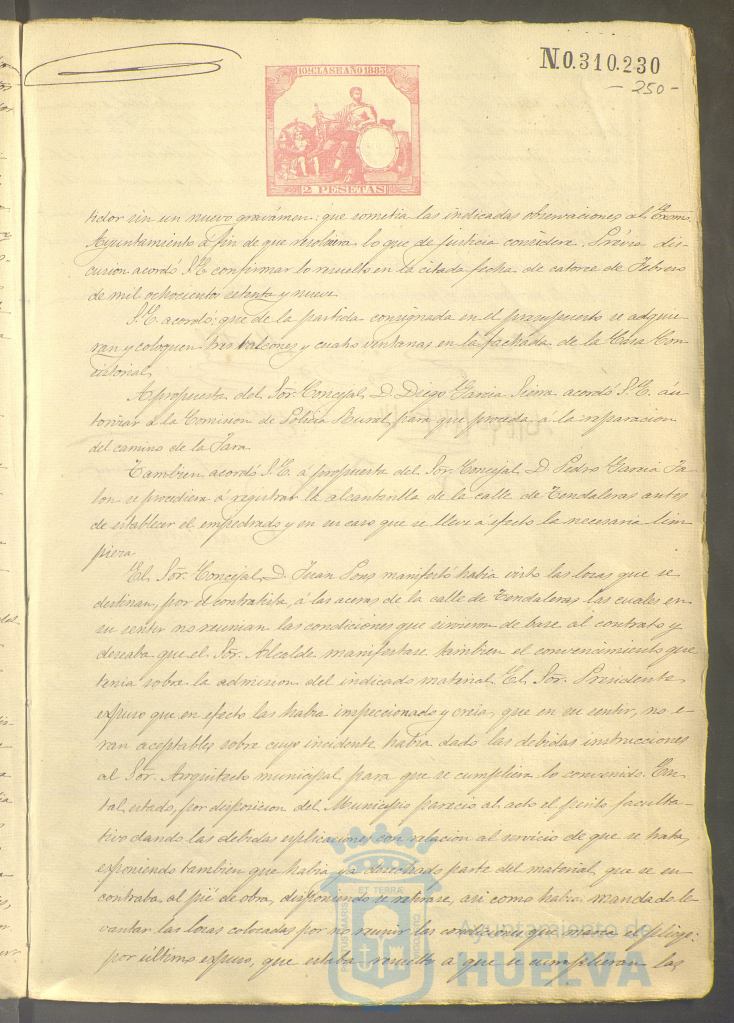 N.0.310.230
- 250 -
10ª CLASE AÑO 1883
2 PESETAS
tidor sin un nuevo gravámen: que sometia las indicadas observaciones al Excmo.
Ayuntamiento á fin de que resolviera lo que de justicia considere. Prévia dis-
cusion acordó S.E. confirmar lo resuelto en la citada fecha de catorce de Febrero
de mil ochocientos setenta y nueve.
S.E. acordó: que de la partida consignada en el presupuesto se adquie-
ran y coloquen tres balcones y cuatro ventanas en la fachada de la Casa Con-
sistorial.
A propuesta del Sor. Concejal, D. Diego Garcia Sierra acordó S.E. au-
torizar a la Comision de Policia Rural para que proceda á la reparacion
del camino de la Jara.
Tambien acordó S.E. á propuesta del Sor. Concejal, D. Pedro Garcia Ja-
lon se procediera á registrar la alcantarilla de la calle de Tendaleras antes
de establecer el empedrado y en su caso que se lleve á efecto la necesaria lim-
pieza.
El Sor. Concejal, D. Juan Pons manifestó habia visto las lozas que se
destinan, por el contratista, á las aceras de la calle de Tendaleras las cuales en
su sentir no reunian las condiciones que sirvieron de base al contrato y
deseaba que el Sor. Alcalde manifestase tambien el convencimiento que
tenia sobre la admision del indicado material. El Sor. Presidente
expuso que en efecto las habia inspeccionado y creia, que en su sentir, no e-
ran aceptables sobre cuyo incidente habia dado las debidas instrucciones
al Sor. Arquitecto municipal para que se cumpliera lo convenido. En
tal estado, por disposicion del Municipio parecio al acto el perito faculta-
tivo dando las debidas esplicaciones con relacion al servicio de que se trata,
exponiendo tambien que habia ya desechado parte del material que se en-
contraba al pié de obra, disponiendo se retirase, asi como habia mandado le-
vantar las lozas colocadas por no reunir las condiciones que marca el pliego:
por último expuso, que estaba resuelto á que se cumplieran las
PORTUS MARIS
ET TERRÆ
CUSTODIA
Ayuntamiento de
HUELVA